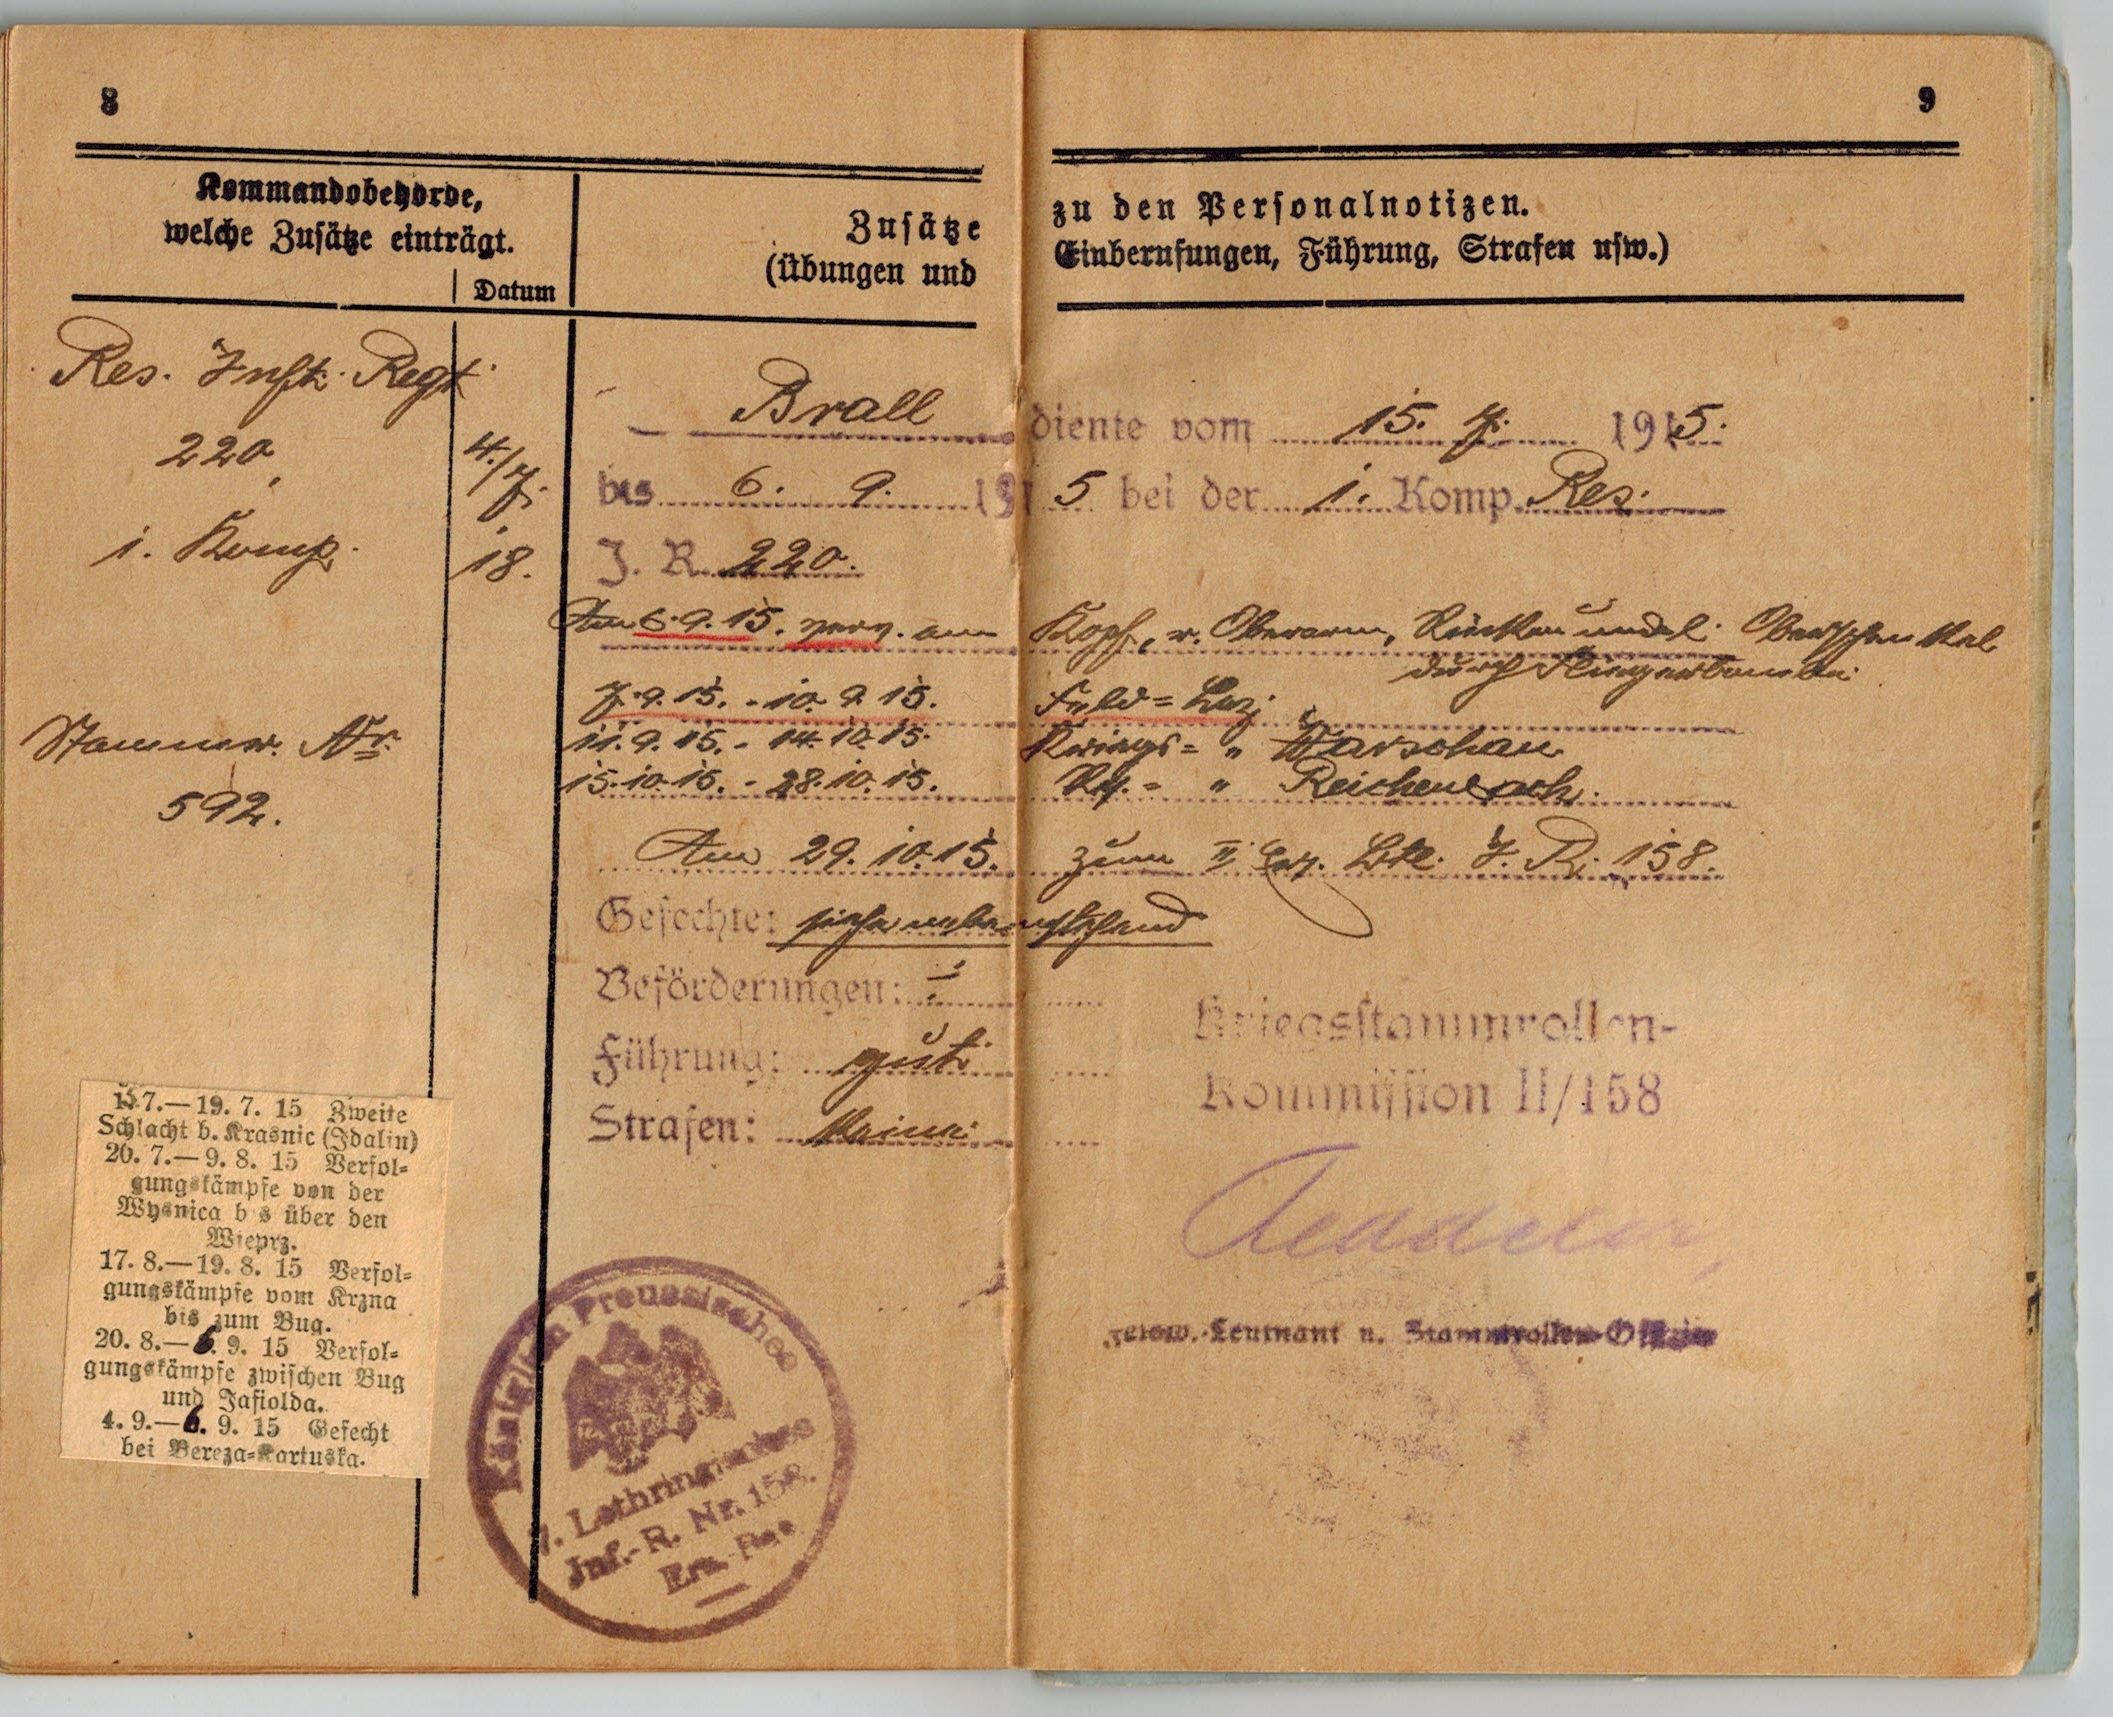 8
9
Kommandobehörde,
welche Zusätze einträgt.
Datum
Zusätze
(Übungen und
zu den Personalnotizen.
Einberufungen, Führung, Strafen usw.)
Res. Inft. Regt.
220,
1. Komp.
4./7.
18.
Stammr. Nr.
592.
Brall diente vom 15. 7. 1915.
bis 6. 9. 191 5 bei der 1. Komp. Res.
J. R. 220.
Am 6.9.15. verw. am Kopf, r. Oberarm, Rücken und l. Oberschenkel
durch Fliegerbombe.
7.9.15. - 10.9.15. Feld= Laz.
11.9.15. - 14.10.15. Kriegs= " Warschau
15.10.15. - 28.10.15. Rs.= " Reichenbach.
Am 29.10.15. zum II Ers. Btl. J. R. 158.
Gefechte: siehe nebenstehend
Beförderungen: -
Führung: gut.
Strafen: Keine.
Kriegsstammrollen-
Kommission II/158
Leutnant u. Stammrollen-Offizier
15.7.—19. 7. 15 Zweite
Schlacht b. Krasnic (Idalin)
20. 7.—9. 8. 15 Verfol=
gungskämpfe von der
Wysnica b s über den
Wieprz.
17. 8.—19. 8. 15 Verfol=
gungskämpfe vom Krzna
bis zum Bug.
20. 8.—6. 9. 15 Verfol=
gungskämpfe zwischen Bug
und Jasiolda.
4. 9.—6. 9. 15 Gefecht
bei Bereza=Kartuska.
Königlich Preussisches
7. Lothringisches
Inf.-R. Nr. 158.